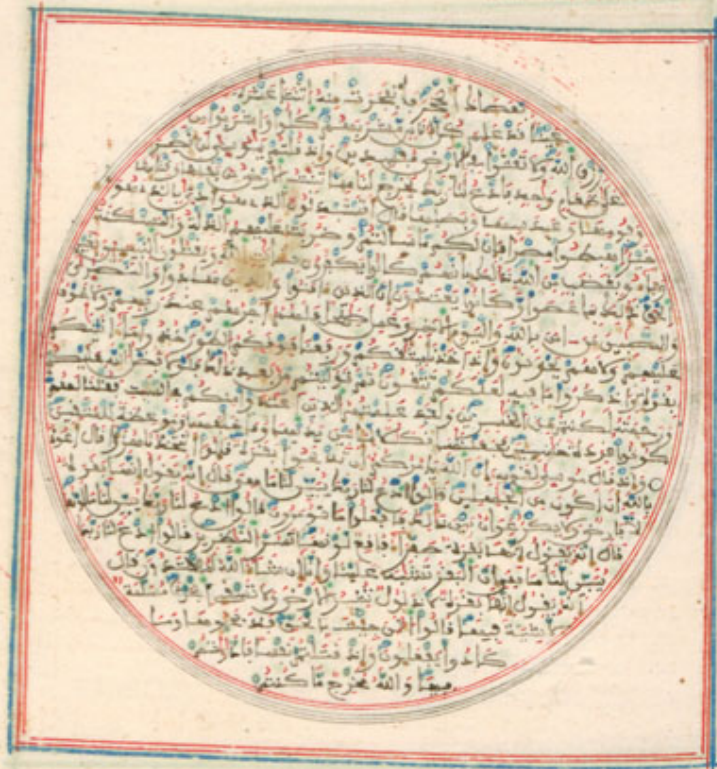 بعصاك الحجر فانفجرت منه اثنتا عشرة
عينا قد علم كل أناس مشربهم كلوا واشربوا من
رزق الله ولا تعثوا في الارض مفسدين وإذ قلتم يموسى لن نصبر
على طعام وحد فادع لنا ربك يخرج لنا مما تنبت الارض من بقلها وقثائها
وفومها وعدسها وبصلها قال أتستبدلون الذي هو أدنى بالذي هو
خير اهبطوا مصرا فإن لكم ما سألتم وضربت عليهم الذلة والمسكنة
وباءو بغضب من الله ذلك بأنهم كانوا يكفرون بآيت الله ويقتلون النبيين بغير
الحق ذلك بما عصوا وكانوا يعتدون إن الذين ءامنوا والذين هادوا والنصرى
والصبين من ءامن بالله واليوم الاخر وعمل صلحا فلهم أجرهم عند ربهم ولا خوف
عليهم ولا هم يحزنون وإذ أخذنا ميثقكم ورفعنا فوقكم الطور خذوا ما ءاتينكم
بقوة واذكروا ما فيه لعلكم تتقون ثم توليتم من بعد ذلك فلولا فضل الله عليكم
ورحمته لكنتم من الخسرين ولقد علمتم الذين اعتدوا منكم في السبت فقلنا لهم
كونوا قردة خسين فجعلنها نكلا لما بين يديها وما خلفها وموعظة للمتقين
وإذ قال موسى لقومه إن الله يامركم أن تذبحوا بقرة قالوا أتتخذنا هزؤا قال أعوذ
بالله أن أكون من الجهلين قالوا ادع لنا ربك يبين لنا ما هي قال إنه يقول إنها بقرة لا
فارض ولا بكر عوان بين ذلك فافعلوا ما تومرون قالوا ادع لنا ربك يبين لنا ما لونها
قال إنه يقول إنها بقرة صفراء فاقع لونها تسر النظرين قالوا ادع لنا ربك
يبين لنا ما هي إن البقر تشبه علينا وإنا إن شاء الله لمهتدون قال
إنه يقول إنها بقرة لا ذلول تثير الارض ولا تسقي الحرث مسلمة
لا شية فيها قالوا الن جئت بالحق فذبحوها وما
كادوا يفعلون وإذ قتلتم نفسا فادارأتم
فيها والله مخرج ما كنتم